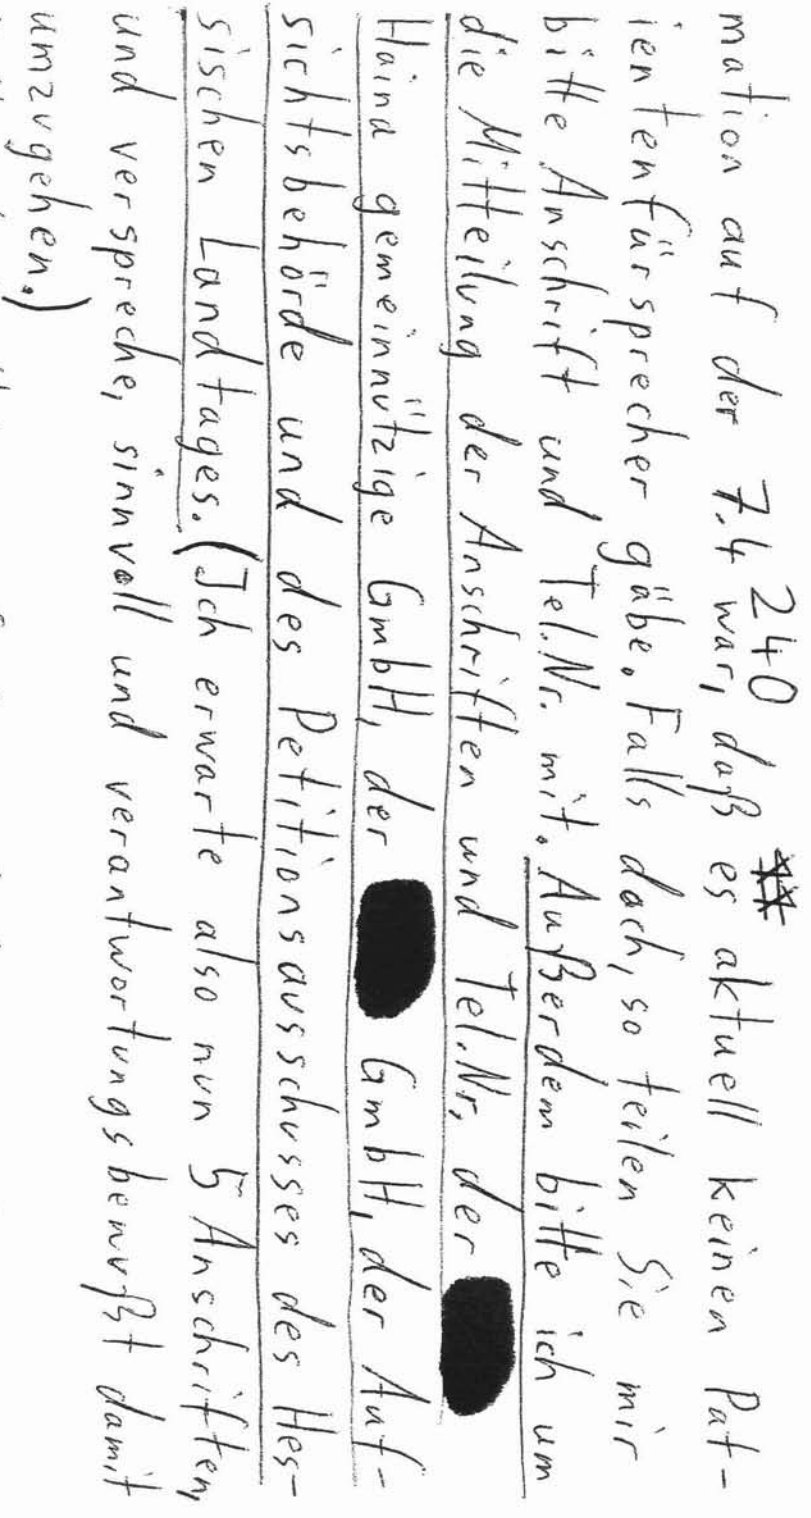 240 **
mation auf der 7.4 war, daß es aktuell keinen Pat-
ientenfürsprecher gäbe. Falls doch, so teilen Sie mir
bitte Anschrift und Tel.Nr. mit. Außerdem bitte ich um
die Mitteilung der Anschriften und Tel.Nr. der
Haina gemeinnützige GmbH, der GmbH, der Auf-
sichtsbehörde und des Petitionsausschusses des Hes-
sischen Landtages. (Ich erwarte also nun 5 Anschriften,
und verspreche, sinnvoll und verantwortungsbewußt damit
umzugehen.)